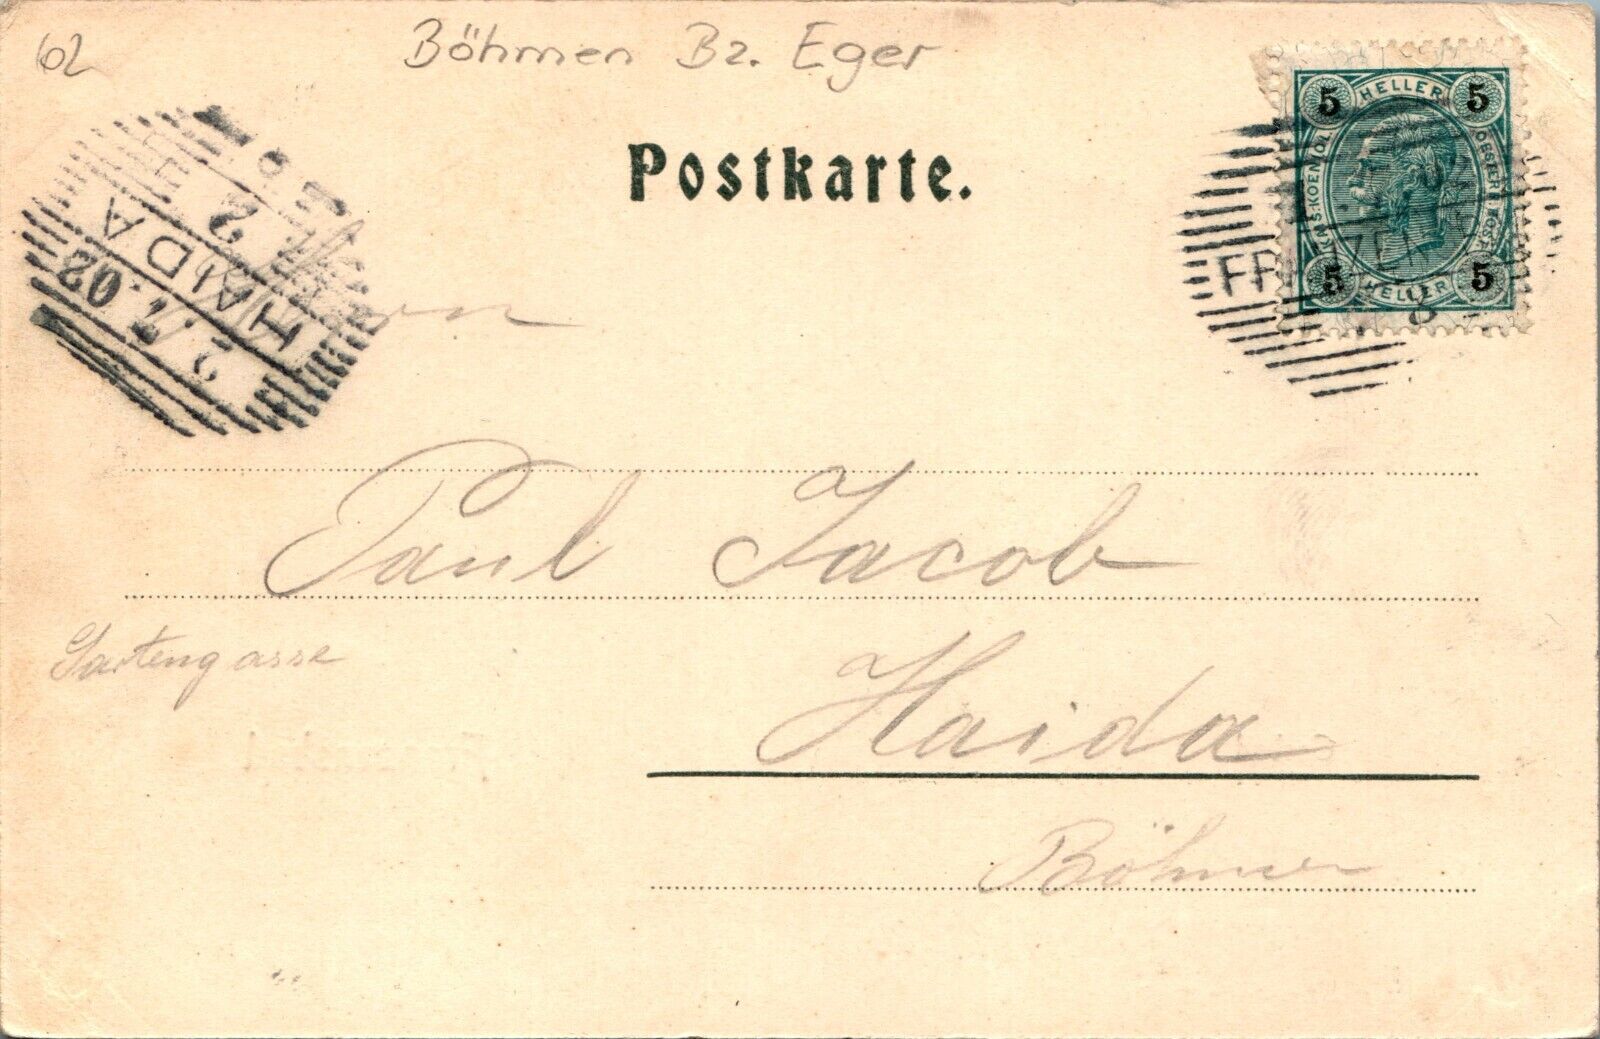 62
Böhmen Bz. Eger
Postkarte.
5 HELLER 5
5 HELLER 5
HAIDA
2
Paul Jacob
Gartengasse
Haida
Böhmen